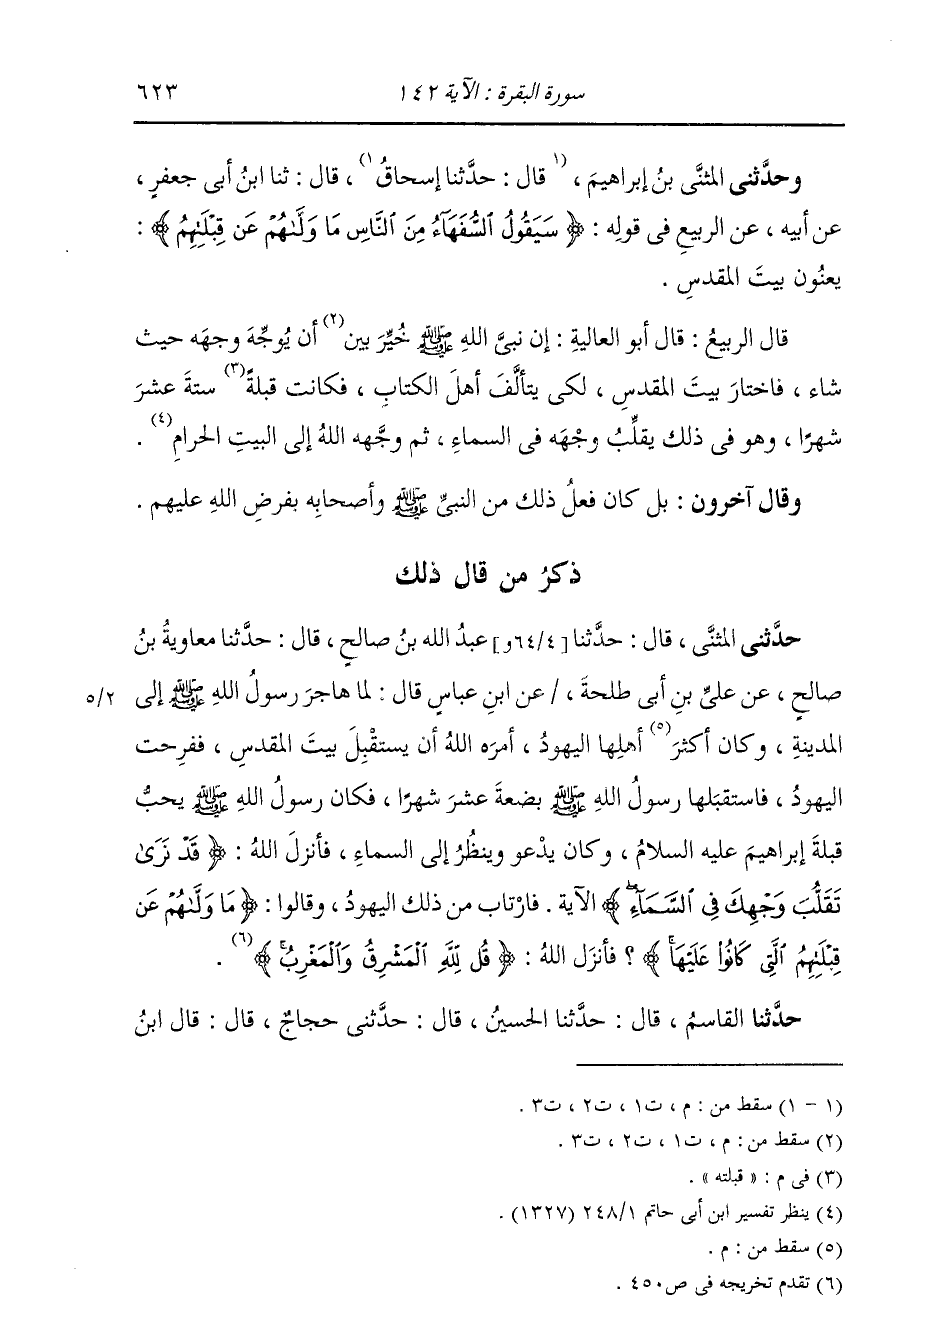 سورة البقرة : الآية ١٤٢ ٦٢٣
وحدَّثنى المثنَّى بنُ إبراهيمَ ، (١ قال : حدَّثنا إسحاقُ ١) ، قال : ثنا ابنُ أبى جعفرٍ ،
عن أبيه ، عن الربيعِ فى قولِه : ﴿ سَيَقُولُ ٱلسُّفَهَآءُ مِنَ ٱلنَّاسِ مَا وَلَّىٰهُمْ عَن قِبْلَتِهِمُ ﴾ :
يعنُون بيتَ المقدسِ .
قال الربيعُ : قال أبو العاليةِ : إن نبىَّ اللهِ ﷺ خُيِّرَ بين(٢) أن يُوجِّهَ وجهَه حيث
شاء ، فاختارَ بيتَ المقدسِ ، لكى يتألَّفَ أهلَ الكتابِ ، فكانت قبلةً(٣) ستةَ عشرَ
شهرًا ، وهو فى ذلك يقلِّبُ وجْهَه فى السماءِ ، ثم وجَّهه اللهُ إلى البيتِ الحرامِ(٤) .
وقال آخرون : بل كان فعلُ ذلك من النبىِّ ﷺ وأصحابِه بفرضِ اللهِ عليهم .
ذكرُ من قال ذلك
حدَّثنى المثنَّى ، قال : حدَّثنا [٦٤/٤و] عبدُ الله بنُ صالحٍ ، قال : حدَّثنا معاويةُ بنُ
صالحٍ ، عن علىِّ بنِ أبى طلحةَ ، / عن ابنِ عباسٍ قال : لما هاجرَ رسولُ اللهِ ﷺ إلى ٥/٢
المدينةِ ، وكان أكثرَ(٥) أهلِها اليهودُ ، أمرَه اللهُ أن يستقْبِلَ بيتَ المقدسِ ، ففرِحت
اليهودُ ، فاستقبَلها رسولُ اللهِ ﷺ بضعةَ عشرَ شهرًا ، فكان رسولُ اللهِ ﷺ يحبُّ
قبلةَ إبراهيمَ عليه السلامُ ، وكان يدْعو وينظُرُ إلى السماءِ ، فأنزلَ اللهُ : ﴿ قَدْ نَرَىٰ
تَقَلُّبَ وَجْهِكَ فِى ٱلسَّمَآءِ ﴾ الآية . فارْتاب من ذلك اليهودُ ، وقالوا : ﴿ مَا وَلَّىٰهُمْ عَن
قِبْلَتِهِمُ ٱلَّتِى كَانُوا۟ عَلَيْهَا ﴾ ؟ فأنزَل اللهُ : ﴿ قُل لِّلَّهِ ٱلْمَشْرِقُ وَٱلْمَغْرِبُ ﴾(٦) .
حدَّثنا القاسمُ ، قال : حدَّثنا الحسينُ ، قال : حدَّثنى حجاجٌ ، قال : قال ابنُ
(١ - ١) سقط من : م ، ت١ ، ت٢ ، ت٣ .
(٢) سقط من : م ، ت١ ، ت٢ ، ت٣ .
(٣) فى م : « قبلته » .
(٤) ينظر تفسير ابن أبى حاتم ٢٤٨/١ (١٣٢٧) .
(٥) سقط من : م .
(٦) تقدم تخريجه فى ص٤٥٠ .